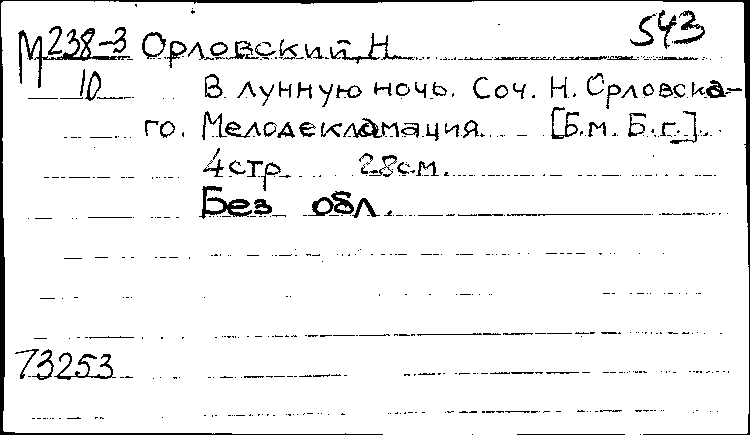 543
М 238-3 Орловский, Н.
10 В лунную ночь. Соч. Н. Орловска-
го. Мелодекламация. [Б.м. Б.г.].
4 стр. 28 см.
Без обл.
73253